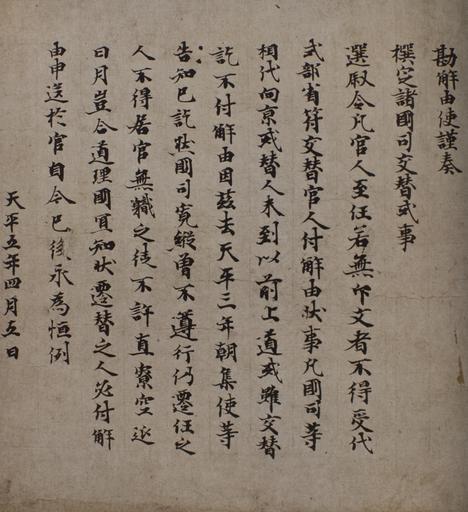 勘解由使謹奏
撰定諸國司交替式事
選叙令凡官人至任若無印文者不得受代
式部省符交替官人付解由狀事凡國司等
相代向京或替人未到以前上道或雖交替
訖不付解由因茲去天平三年朝集使等
告知已訖狀國司寛縱曾不遵行仍遷任之
人不得居官無職之徒不許直寮空延
日月豈合道理國冝知狀遷替之人必付解
由申送於官自今已後永為恒例
天平五年四月五日